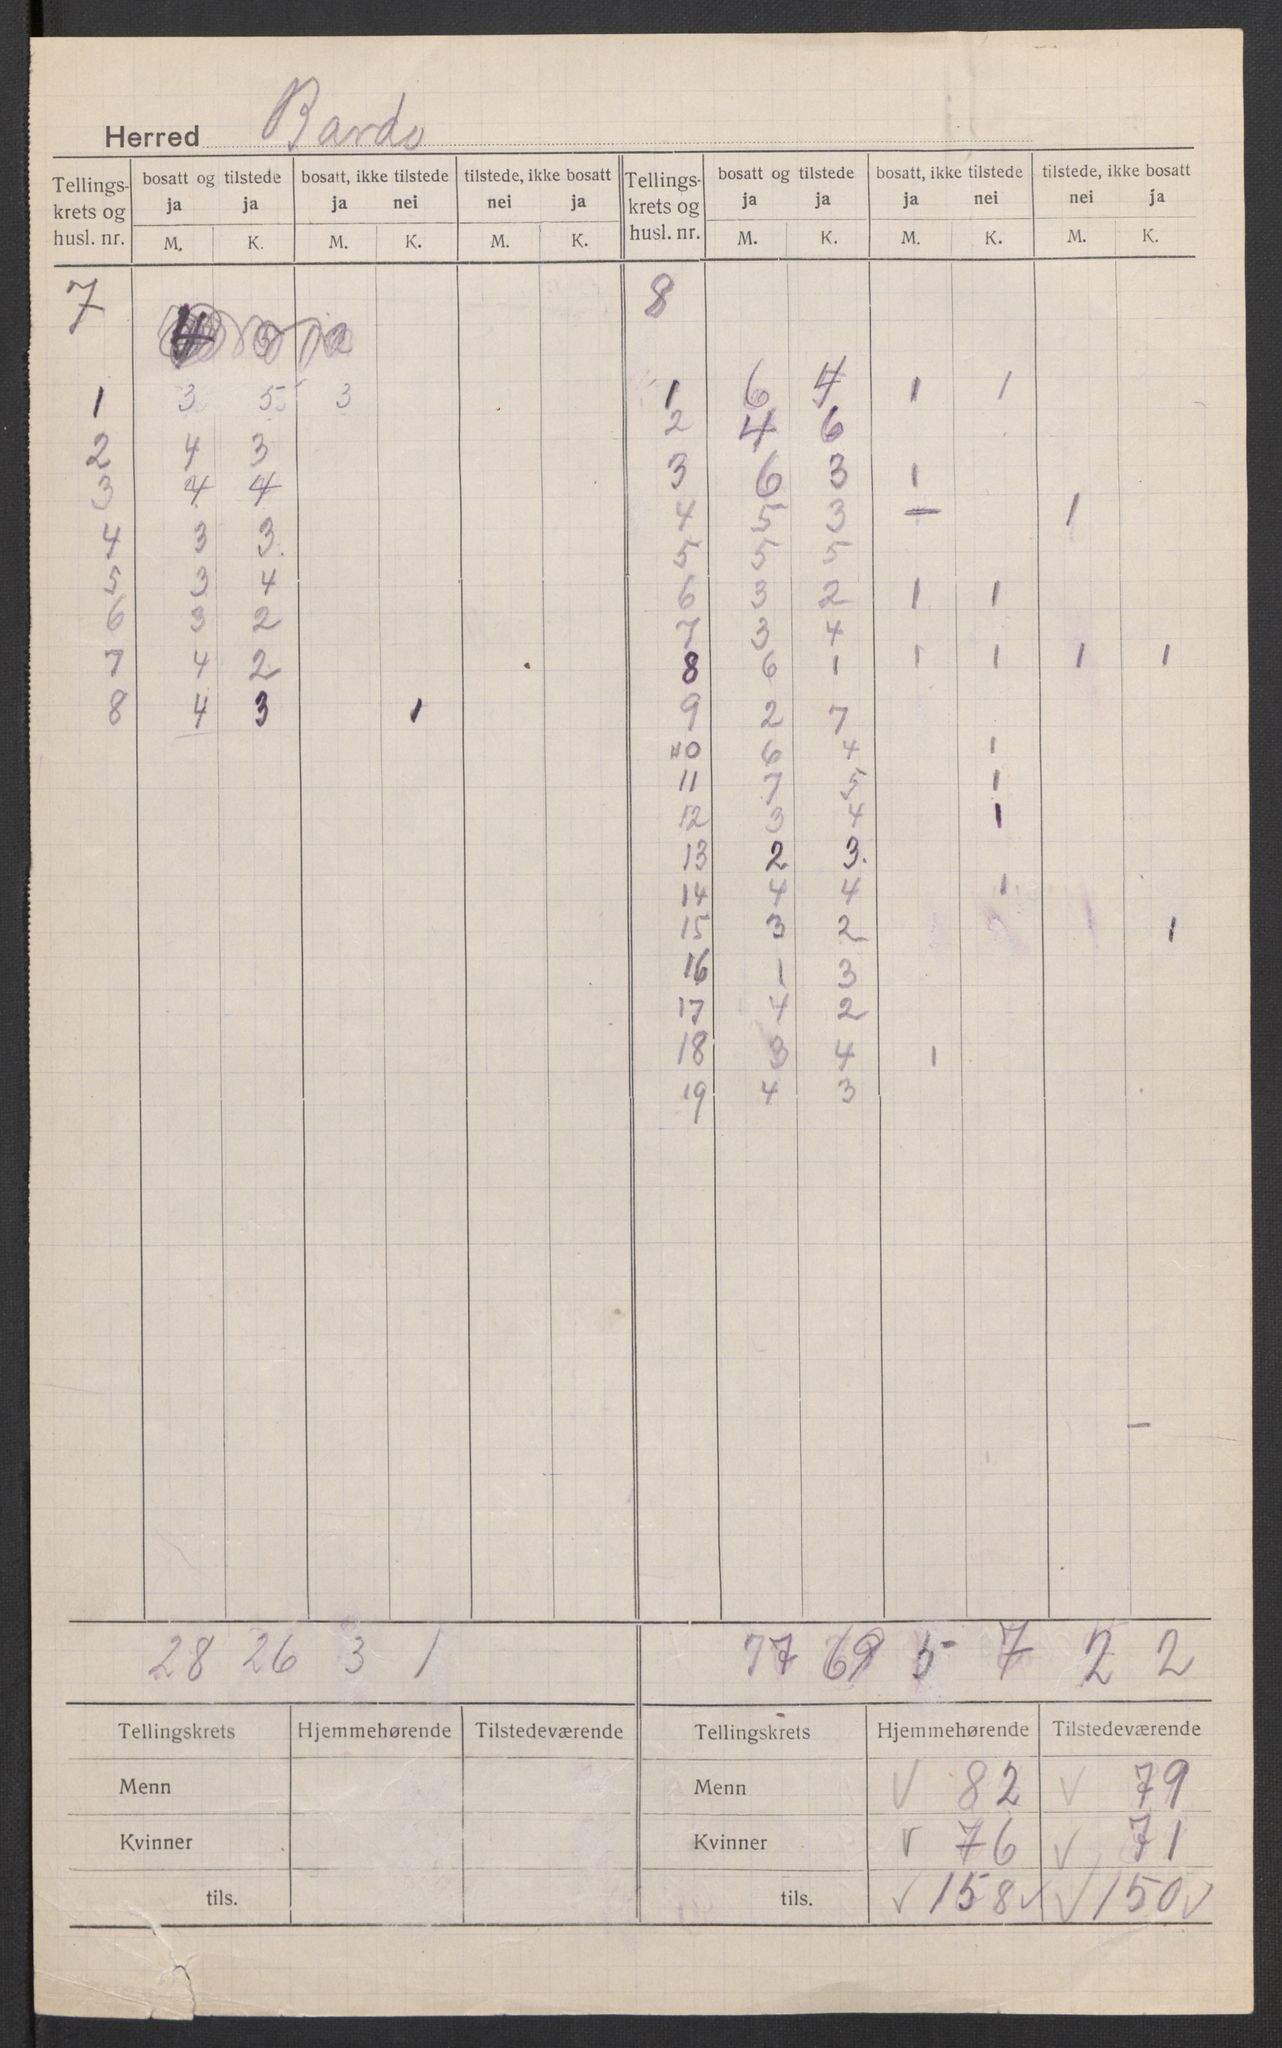 Herred Bardo
Tellings- krets og husl. nr. | bosatt og tilstede ja ja | bosatt, ikke tilstede ja nei | tilstede, ikke bosatt nei ja | Tellings- krets og husl. nr. | bosatt og tilstede ja ja | bosatt, ikke tilstede ja nei | tilstede, ikke bosatt nei ja
M. K. M. K. M. K. M. K. M. K. M. K.
7 8
1 3 5 3 1 6 4 1 1
2 4 3 2 4 6
3 4 4 3 6 3 1
4 3 3. 4 5 3 — 1
5 3 4 5 5 5
6 3 2 6 3 2 1 1
7 4 2 7 3 4
8 4 3 1 8 6 1 1 1 1 1
9 2 7
10 6 4 1
11 7 5 1
12 3 4 1
13 2 3.
14 4 4 1
15 3 2 1
16 1 3
17 4 2
18 3 4 1
19 4 3
28 26 3 1 77 69 5 7 2 2
Tellingskrets Hjemmehørende Tilstedeværende Tellingskrets Hjemmehørende Tilstedeværende
Menn Menn √ 82 √ 79
Kvinner Kvinner √ 76 √ 71
tils. tils. √ 158 √ √ 150 √